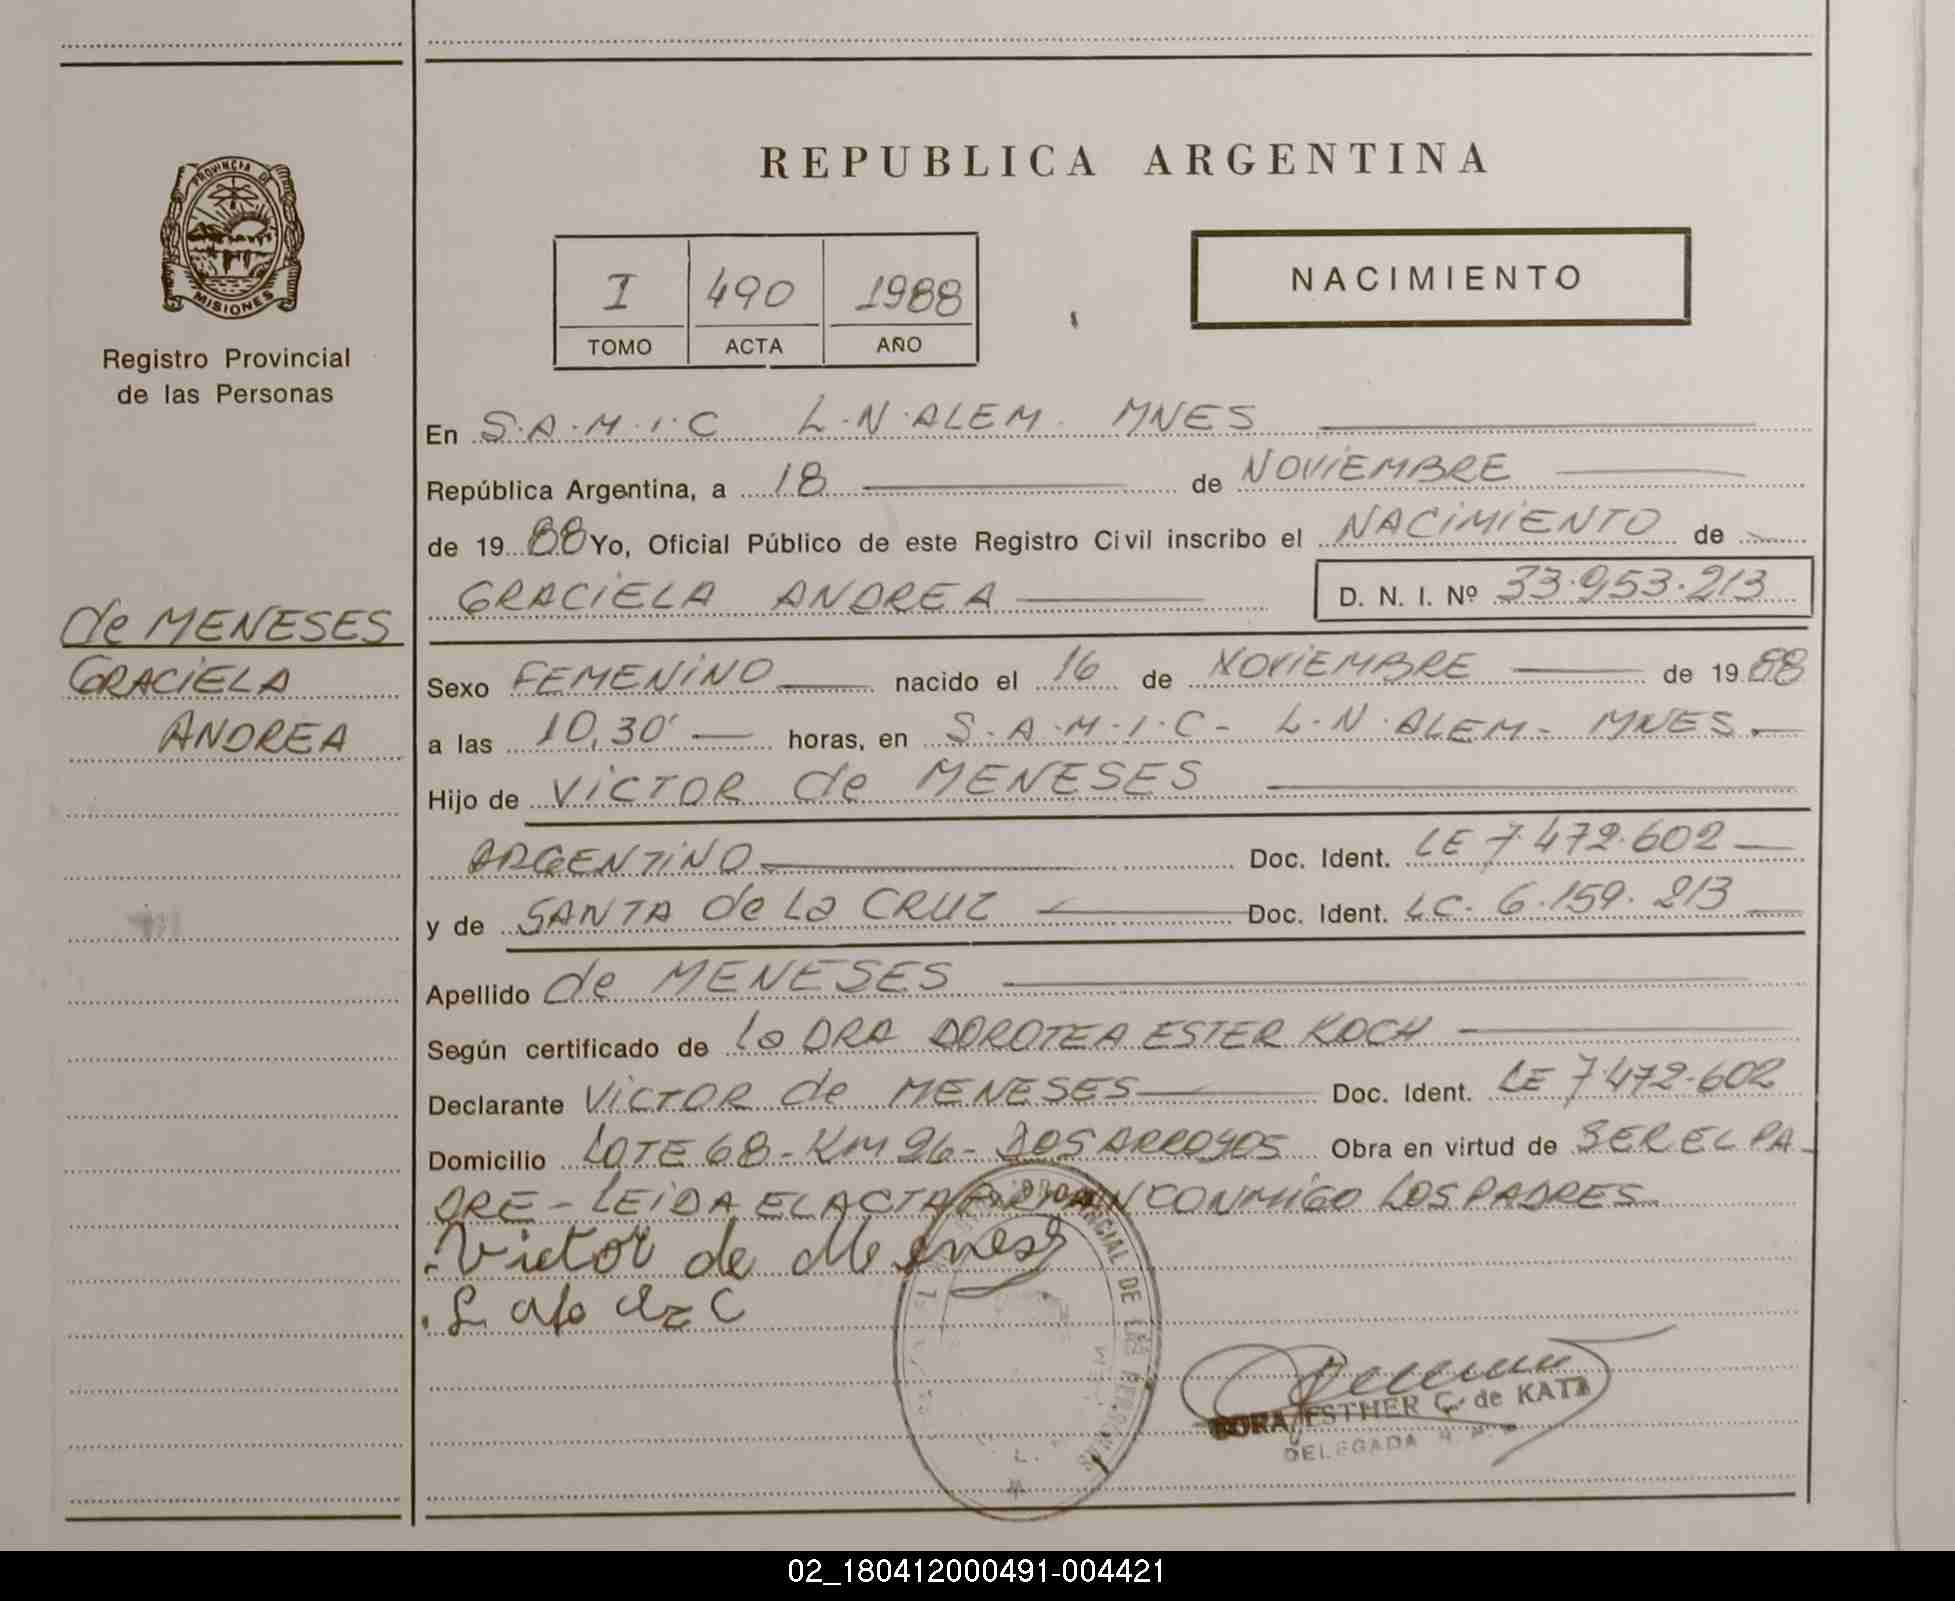 PROVINCIA DE
MISIONES
Registro Provincial
de las Personas
de MENESES
GRACIELA
ANDREA
REPUBLICA ARGENTINA
I 490 1988
TOMO ACTA AÑO
NACIMIENTO
En S.A.M.I.C L.N.ALEM. MNES
República Argentina, a 18 de NOVIEMBRE
de 1988 Yo, Oficial Público de este Registro Civil inscribo el NACIMIENTO de
GRACIELA ANDREA D. N. I. Nº 33.953.213
Sexo FEMENINO nacido el 16 de NOVIEMBRE de 1988
a las 10,30' horas, en S.A.M.I.C- L.N.ALEM- MNES.
Hijo de VICTOR de MENESES
ARGENTINO Doc. Ident. LE 7.472.602
y de SANTA de La CRUZ Doc. Ident. LC. 6.159.213
Apellido de MENESES
Según certificado de la DRA DOROTEA ESTER KOCH
Declarante VICTOR de MENESES Doc. Ident. LE 7.472.602
Domicilio LOTE 68-KM 26- DOS ARROYOS Obra en virtud de SER EL PA-
DRE - LEIDA EL ACTA FIRMAN CONMIGO LOS PADRES
Victor de Meneses
PROVINCIAL DE LAS PERSONAS
DORA ESTHER C. de KATZ
DELEGADA
02_180412000491-004421